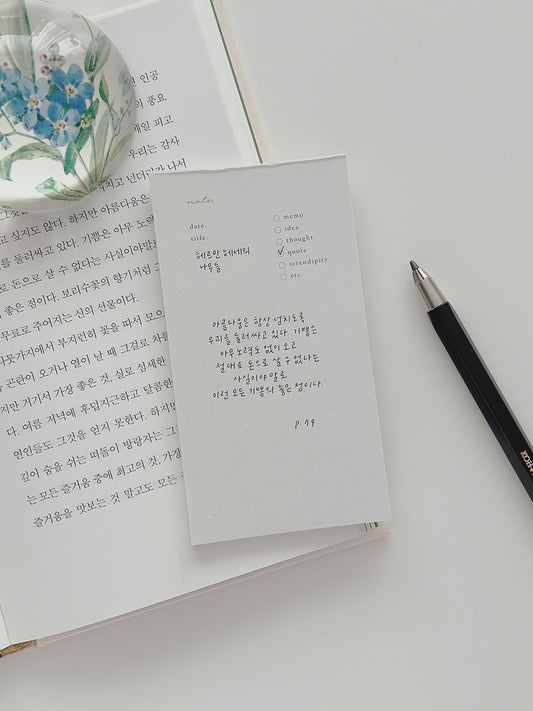 인공
의 풍요
매일 피고
우리는 감사
치고 넌더리가 나서
고 싶지도 않다. 하지만 아름다움은
를 둘러싸고 있다. 기쁨은 아무 노력
로 돈으로 살 수 없다는 사실이야말로
좋은 점이다. 보리수꽃의 향기처럼 그
무료로 주어지는 신의 선물이다.
나뭇가지에서 부지런히 꽃을 따서 모으
곤란이 오거나 열이 날 때 그걸로 차를
지만 거기서 가장 좋은 것, 실로 섬세한
다. 여름 저녁에 후덥지근하고 달콤한
연인들도 그것을 얻지 못한다. 하지만
깊이 숨을 쉬는 떠돌이 방랑자는 그
는 모든 즐거움 중에 최고의 것, 가장
즐거움을 맛보는 것 말고도 모든
note
date.
title.
헤르만 헤세의
나무들
memo
idea
thought
quote
serendipity
etc.
아름다움은 항상 넘치도록
우리를 둘러싸고 있다. 기쁨은
아무 노력도 없이 오고
절대로 돈으로 살 수 없다는
사실이야말로
이런 모든 기쁨의 좋은 점이다.
p.79